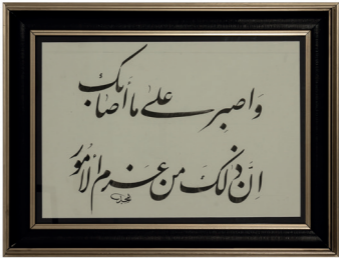 وَاصبر على ما أصابك
اِنَّ ذٰلك من عزم الأمور